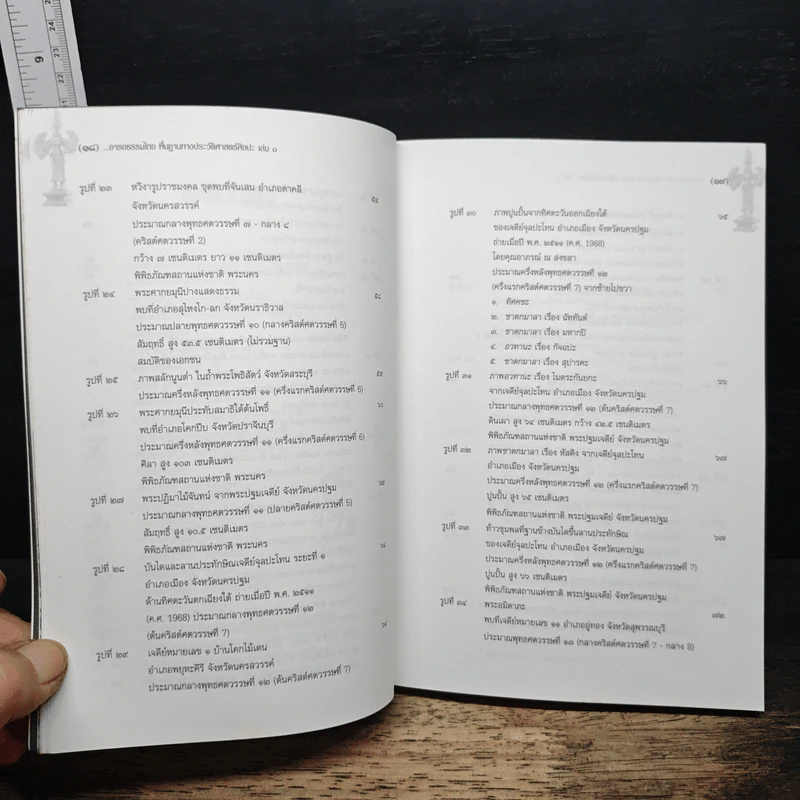 (๑๘) ...อารยธรรมไทย พื้นฐานทางประวัติศาสตร์ศิลปะ เล่ม ๑
รูปที่ ๒๓ หวีงารูปราชมงคล ขุดพบที่จันเสน อำเภอตาคลี
จังหวัดนครสวรรค์
ประมาณกลางพุทธศตวรรษที่ ๗ - กลาง ๘
(คริสต์ศตวรรษที่ 2)
กว้าง ๗ เซนติเมตร ยาว ๑๑ เซนติเมตร
พิพิธภัณฑสถานแห่งชาติ พระนคร
รูปที่ ๒๔ พระศากยมุนีปางแสดงธรรม ๕๘
พบที่อำเภอสุไหงโก-ลก จังหวัดนราธิวาส
ประมาณปลายพุทธศตวรรษที่ ๑๐ (กลางคริสต์ศตวรรษที่ 5)
สัมฤทธิ์ สูง ๕๓.๕ เซนติเมตร (ไม่รวมฐาน)
สมบัติของเอกชน
รูปที่ ๒๕ ภาพสลักนูนต่ำ ในถ้ำพระโพธิสัตว์ จังหวัดสระบุรี ๕๙
ประมาณครึ่งหลังพุทธศตวรรษที่ ๑๑ (ครึ่งแรกคริสต์ศตวรรษที่ 6)
รูปที่ ๒๖ พระศากยมุนีประทับสมาธิใต้ต้นโพธิ์ ๖๐
พบที่อำเภอโคกปีบ จังหวัดปราจีนบุรี
ประมาณครึ่งหลังพุทธศตวรรษที่ ๑๑ (ครึ่งแรกคริสต์ศตวรรษที่ 6)
ศิลา สูง ๑๐๓ เซนติเมตร
พิพิธภัณฑสถานแห่งชาติ พระนคร
รูปที่ ๒๗ พระปฏิมาไม้จันทน์ จากพระปฐมเจดีย์ จังหวัดนครปฐม
ประมาณกลางพุทธศตวรรษที่ ๑๑ (ปลายคริสต์ศตวรรษที่ 5)
สัมฤทธิ์ สูง ๑๐.๕ เซนติเมตร
พิพิธภัณฑสถานแห่งชาติ พระนคร
รูปที่ ๒๘ บันไดและลานประทักษิณเจดีย์จุลปะโทน ระยะที่ ๑
อำเภอเมือง จังหวัดนครปฐม
ด้านทิศตะวันตกเฉียงใต้ ถ่ายเมื่อปี พ.ศ. ๒๕๑๑
(ค.ศ. 1968) ประมาณกลางพุทธศตวรรษที่ ๑๒
(ต้นคริสต์ศตวรรษที่ 7)
รูปที่ ๒๙ เจดีย์หมายเลข ๑ บ้านโคกไม้เดน
อำเภอพยุหะคีรี จังหวัดนครสวรรค์
ประมาณกลางพุทธศตวรรษที่ ๑๒ (ต้นคริสต์ศตวรรษที่ 7)
(๑๙)
รูปที่ ๓๐ ภาพปูนปั้นจากทิศตะวันออกเฉียงใต้ ๖๕
ของเจดีย์จุลปะโทน อำเภอเมือง จังหวัดนครปฐม
ถ่ายเมื่อปี พ.ศ. ๒๕๑๑ (ค.ศ. 1968)
โดยคุณอาภรณ์ ณ สงขลา
ประมาณครึ่งหลังพุทธศตวรรษที่ ๑๒
(ครึ่งแรกคริสต์ศตวรรษที่ 7) จากซ้ายไปขวา
๑. ทิศคชะ
๒. ชาดกมาลา เรื่อง ฉัททันต์
๓. ชาดกมาลา เรื่อง มหากปิ
๔. อวทานะ เรื่อง กัจฉปะ
๕. ชาดกมาลา เรื่อง สุปารคะ
รูปที่ ๓๑ ภาพอวทานะ เรื่อง ไมตระกันยกะ ๖๖
จากเจดีย์จุลปะโทน อำเภอเมือง จังหวัดนครปฐม
ประมาณกลางพุทธศตวรรษที่ ๑๒ (ต้นคริสต์ศตวรรษที่ 7)
ดินเผา สูง ๖๔ เซนติเมตร กว้าง ๔๒.๕ เซนติเมตร
พิพิธภัณฑสถานแห่งชาติ พระปฐมเจดีย์ จังหวัดนครปฐม
รูปที่ ๓๒ ภาพชาดกมาลา เรื่อง หัสดิง จากเจดีย์จุลปะโทน ๖๗
อำเภอเมือง จังหวัดนครปฐม
ประมาณครึ่งหลังพุทธศตวรรษที่ ๑๒ (ครึ่งแรกคริสต์ศตวรรษที่ 7)
ปูนปั้น สูง ๖๕ เซนติเมตร
พิพิธภัณฑสถานแห่งชาติ พระปฐมเจดีย์ จังหวัดนครปฐม
รูปที่ ๓๓ ท้าวชุมพลที่ฐานข้างบันไดขึ้นลานประทักษิณ ๖๗
ของเจดีย์จุลปะโทน อำเภอเมือง จังหวัดนครปฐม
ประมาณครึ่งหลังพุทธศตวรรษที่ ๑๒ (ครึ่งแรกคริสต์ศตวรรษที่ 7)
ปูนปั้น สูง ๖๖ เซนติเมตร
พิพิธภัณฑสถานแห่งชาติ พระปฐมเจดีย์ จังหวัดนครปฐม
รูปที่ ๓๔ พระอมิตาภะ ๗๒
พบที่เจดีย์หมายเลข ๑๑ อำเภออู่ทอง จังหวัดสุพรรณบุรี
ประมาณพุทธศตวรรษที่ ๑๓ (กลางคริสต์ศตวรรษที่ 7 - กลาง 8)